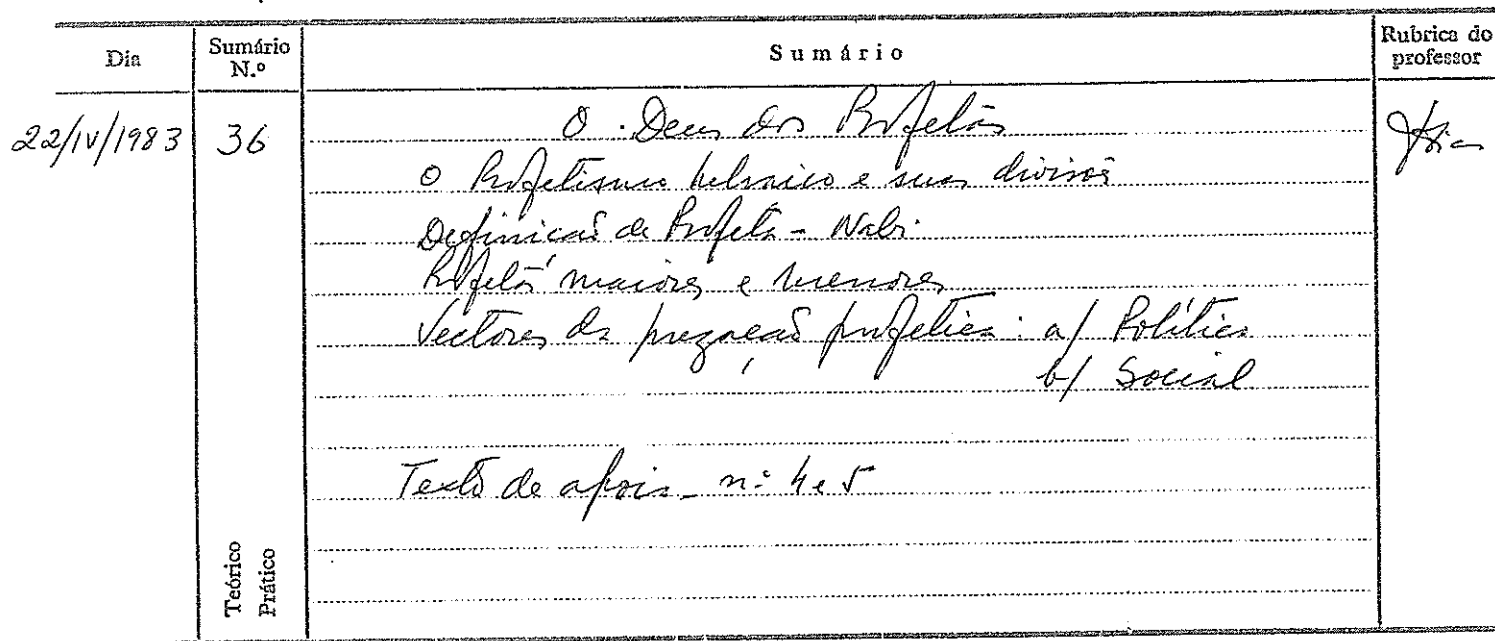 Dia
Sumário N.º
Sumário
Rubrica do professor
22/IV/1983
36
O Deus dos Profetas
O Profetismo hebraico e suas divisões
Definição de Profeta - Nabi
Profetas maiores e menores
Vectores da pregação profética: a/ Política
b/ Social
Texto de apoio - nº 4 e 5
Teórico
Prático